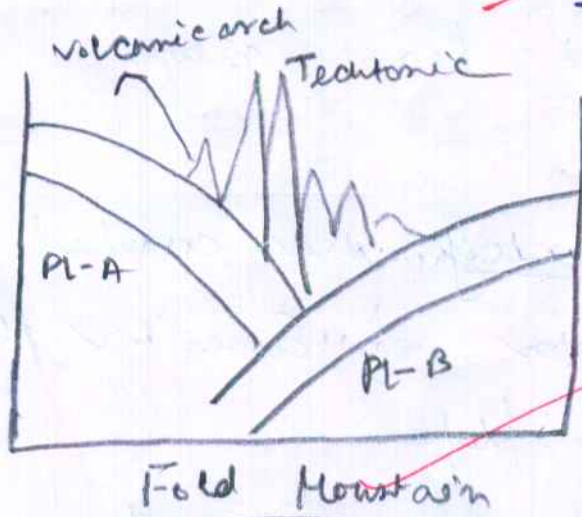 volcanic arch
Techtonic
Pl-A
Pl-B
Fold Mountain